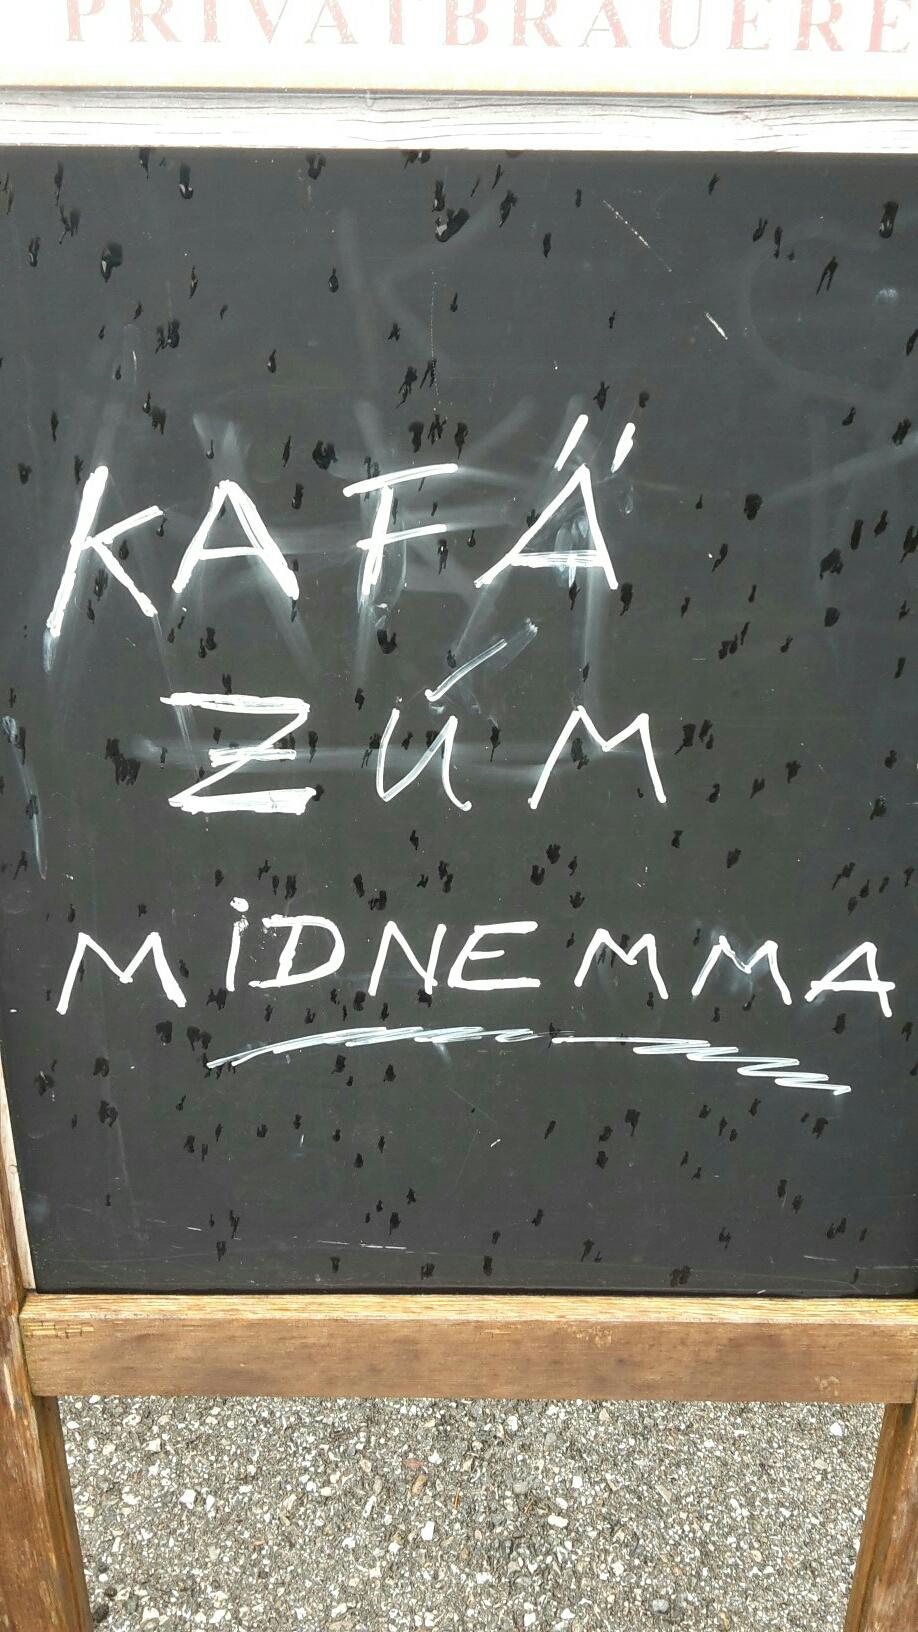 PRIVATBRAUERE
KAFÄ
ZÚM
MiDNEMMA